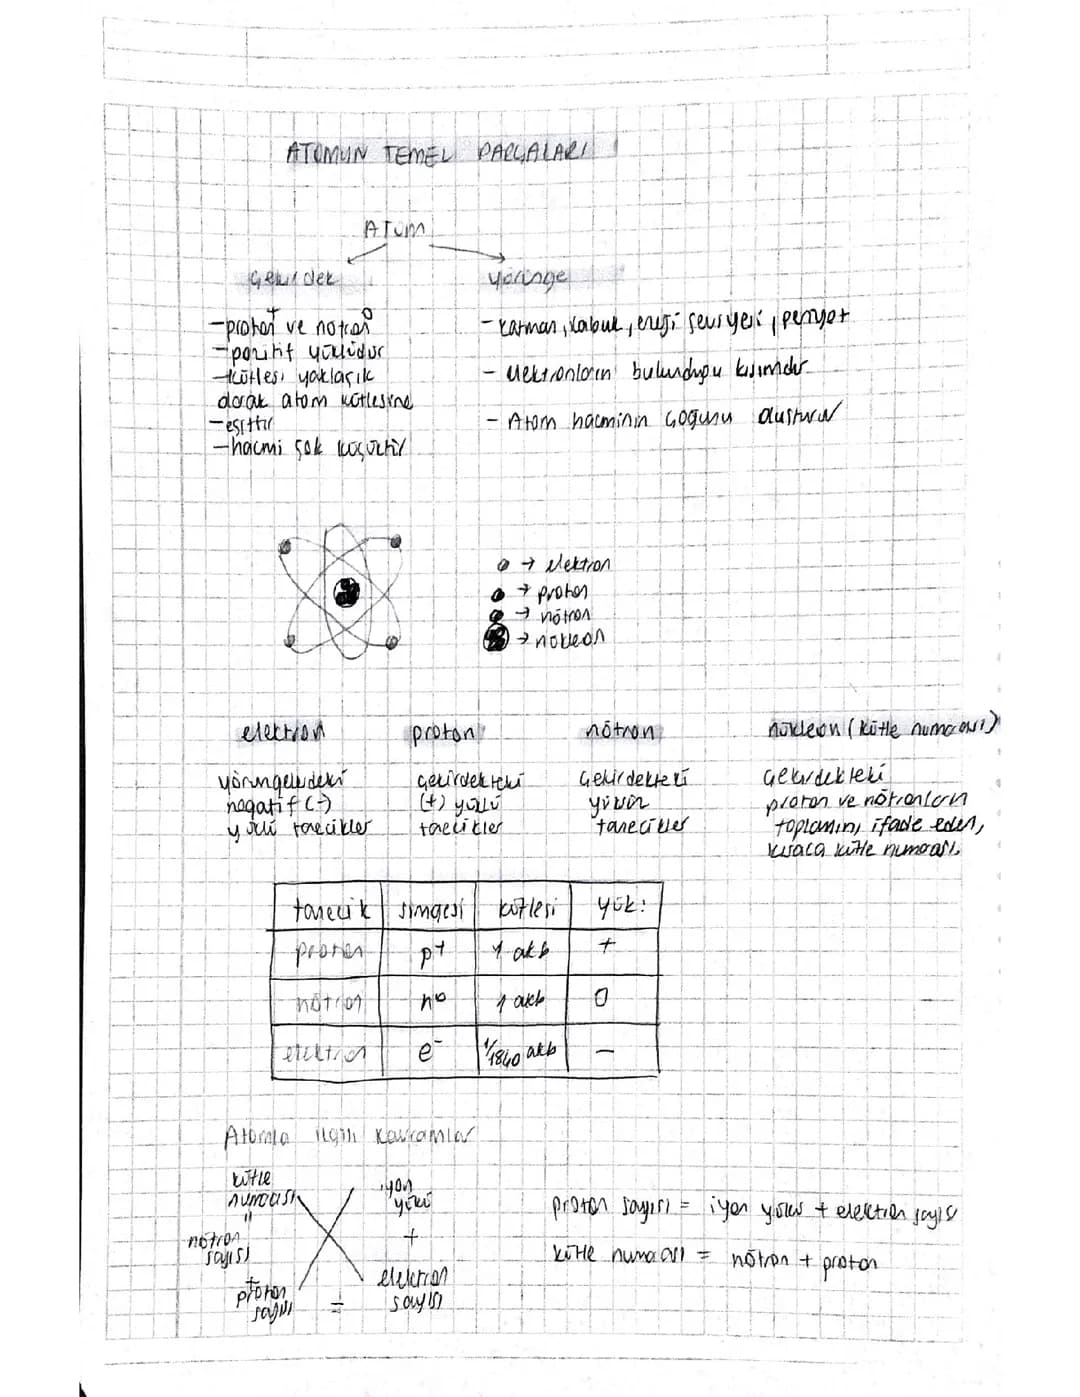 ATOMUN TEMEL PARÇALARI
ATOM
Çekirdek
yörünge
-proton+ ve nötron0
-pozitif yüklüdür
-kütlesi yaklaşık
olarak atom kütlesine
-eşittir
-hacmi çok küçüktür
- katman, kabuk, enerji seviyesi, periyot
- elektronların bulunduğu kısımdır
- Atom hacminin çoğunu oluşturur
→ elektron
→ proton
→ nötron
→ nükleon
elektron
proton
nötron
nükleon (kütle numarası)
yörüngelerdeki
negatif (-)
yüklü tanecikler
çekirdekteki
(+) yüklü
tanecikler
Çekirdekteki
yüksüz
tanecikler
Çekirdekteki
proton ve nötronların
toplamını ifade eden,
kısaca kütle numarası.
tanecik simgesi kütlesi yük:
proton p+ 1 akb +
nötron n0 1 akb 0
elektron e- 1/1840 akb -
Atomla ilgili kavramlar
kütle
numarası
=
nötron
sayısı
+
proton
sayısı
=
iyon
yükü
+
elektron
sayısı
proton sayısı = iyon yükü + elektron sayısı
kütle numarası = nötron + proton